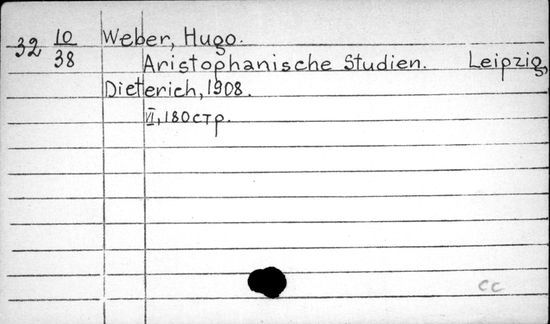 32 10/38 Weber, Hugo.
Aristophanische Studien. Leipzig,
Dieterich, 1908.
VI, 180 стр.
cc